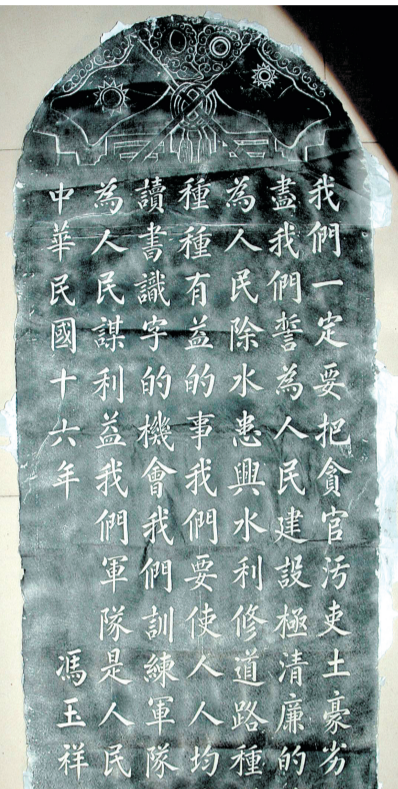 我們一定要把貪官污吏土豪劣
盡我們誓為人民建設極清廉的
為人民除水患興水利修道路種
種種有益的事我們要使人人均
讀書識字的機會我們訓練軍隊
為人民謀利益我們軍隊是人民
中華民國十六年 馮玉祥